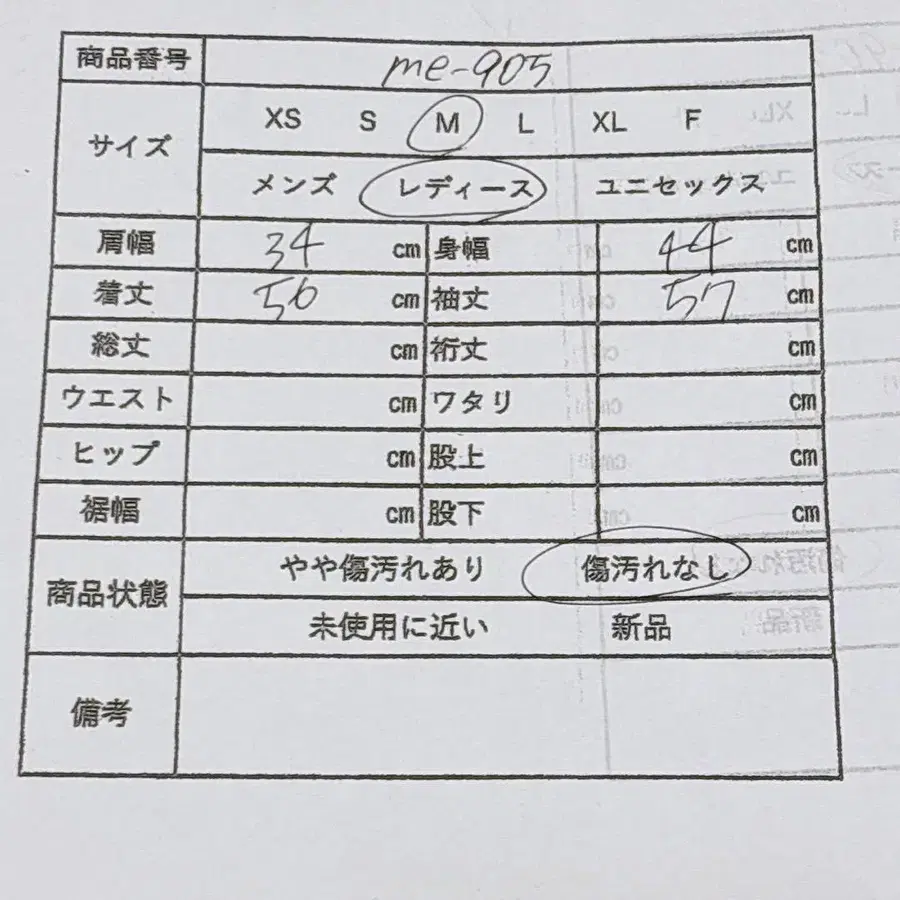 商品番号 me-905
サイズ XS S M L XL F
メンズ レディース ユニセックス
肩幅 34 cm 身幅 44 cm
着丈 56 cm 袖丈 57 cm
総丈 cm 裄丈 cm
ウエスト cm ワタリ cm
ヒップ cm 股上 cm
裾幅 cm 股下 cm
商品状態 やや傷汚れあり 傷汚れなし
未使用に近い 新品
備考